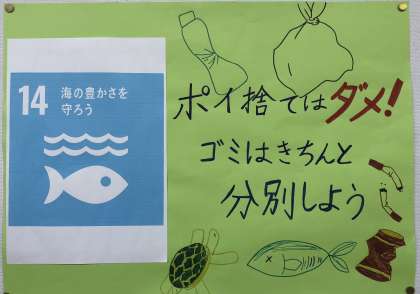 14 海の豊かさを
守ろう
ポイ捨てはダメ!
ゴミはきちんと
分別しよう